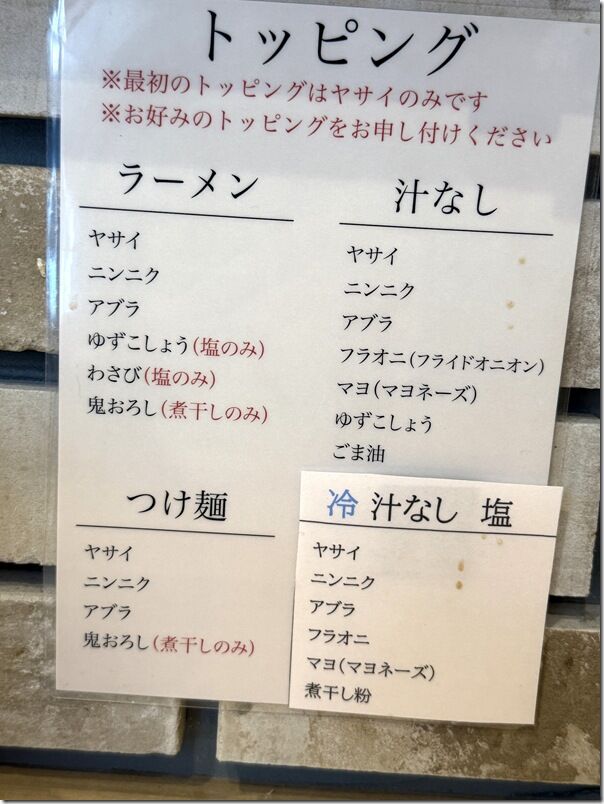 トッピング
※最初のトッピングはヤサイのみです
※お好みのトッピングをお申し付けください
ラーメン
ヤサイ
ニンニク
アブラ
ゆずこしょう(塩のみ)
わさび(塩のみ)
鬼おろし(煮干しのみ)
汁なし
ヤサイ
ニンニク
アブラ
フラオニ(フライドオニオン)
マヨ(マヨネーズ)
ゆずこしょう
ごま油
つけ麺
ヤサイ
ニンニク
アブラ
鬼おろし(煮干しのみ)
冷 汁なし 塩
ヤサイ
ニンニク
アブラ
フラオニ
マヨ(マヨネーズ)
煮干し粉